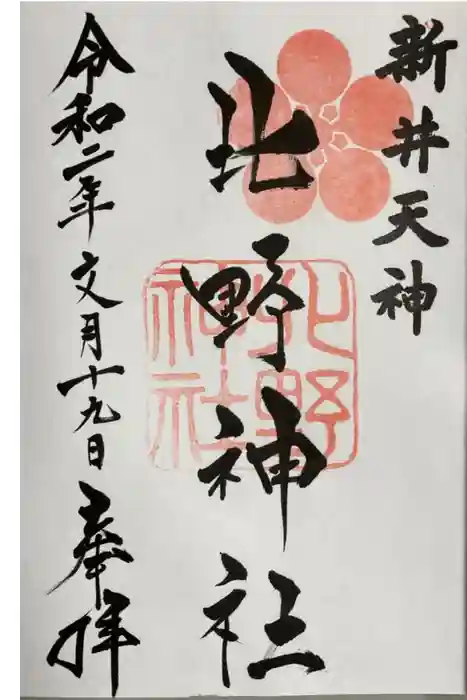 新井天神
北野神社
北野
神社
令和二年文月十九日奉拝